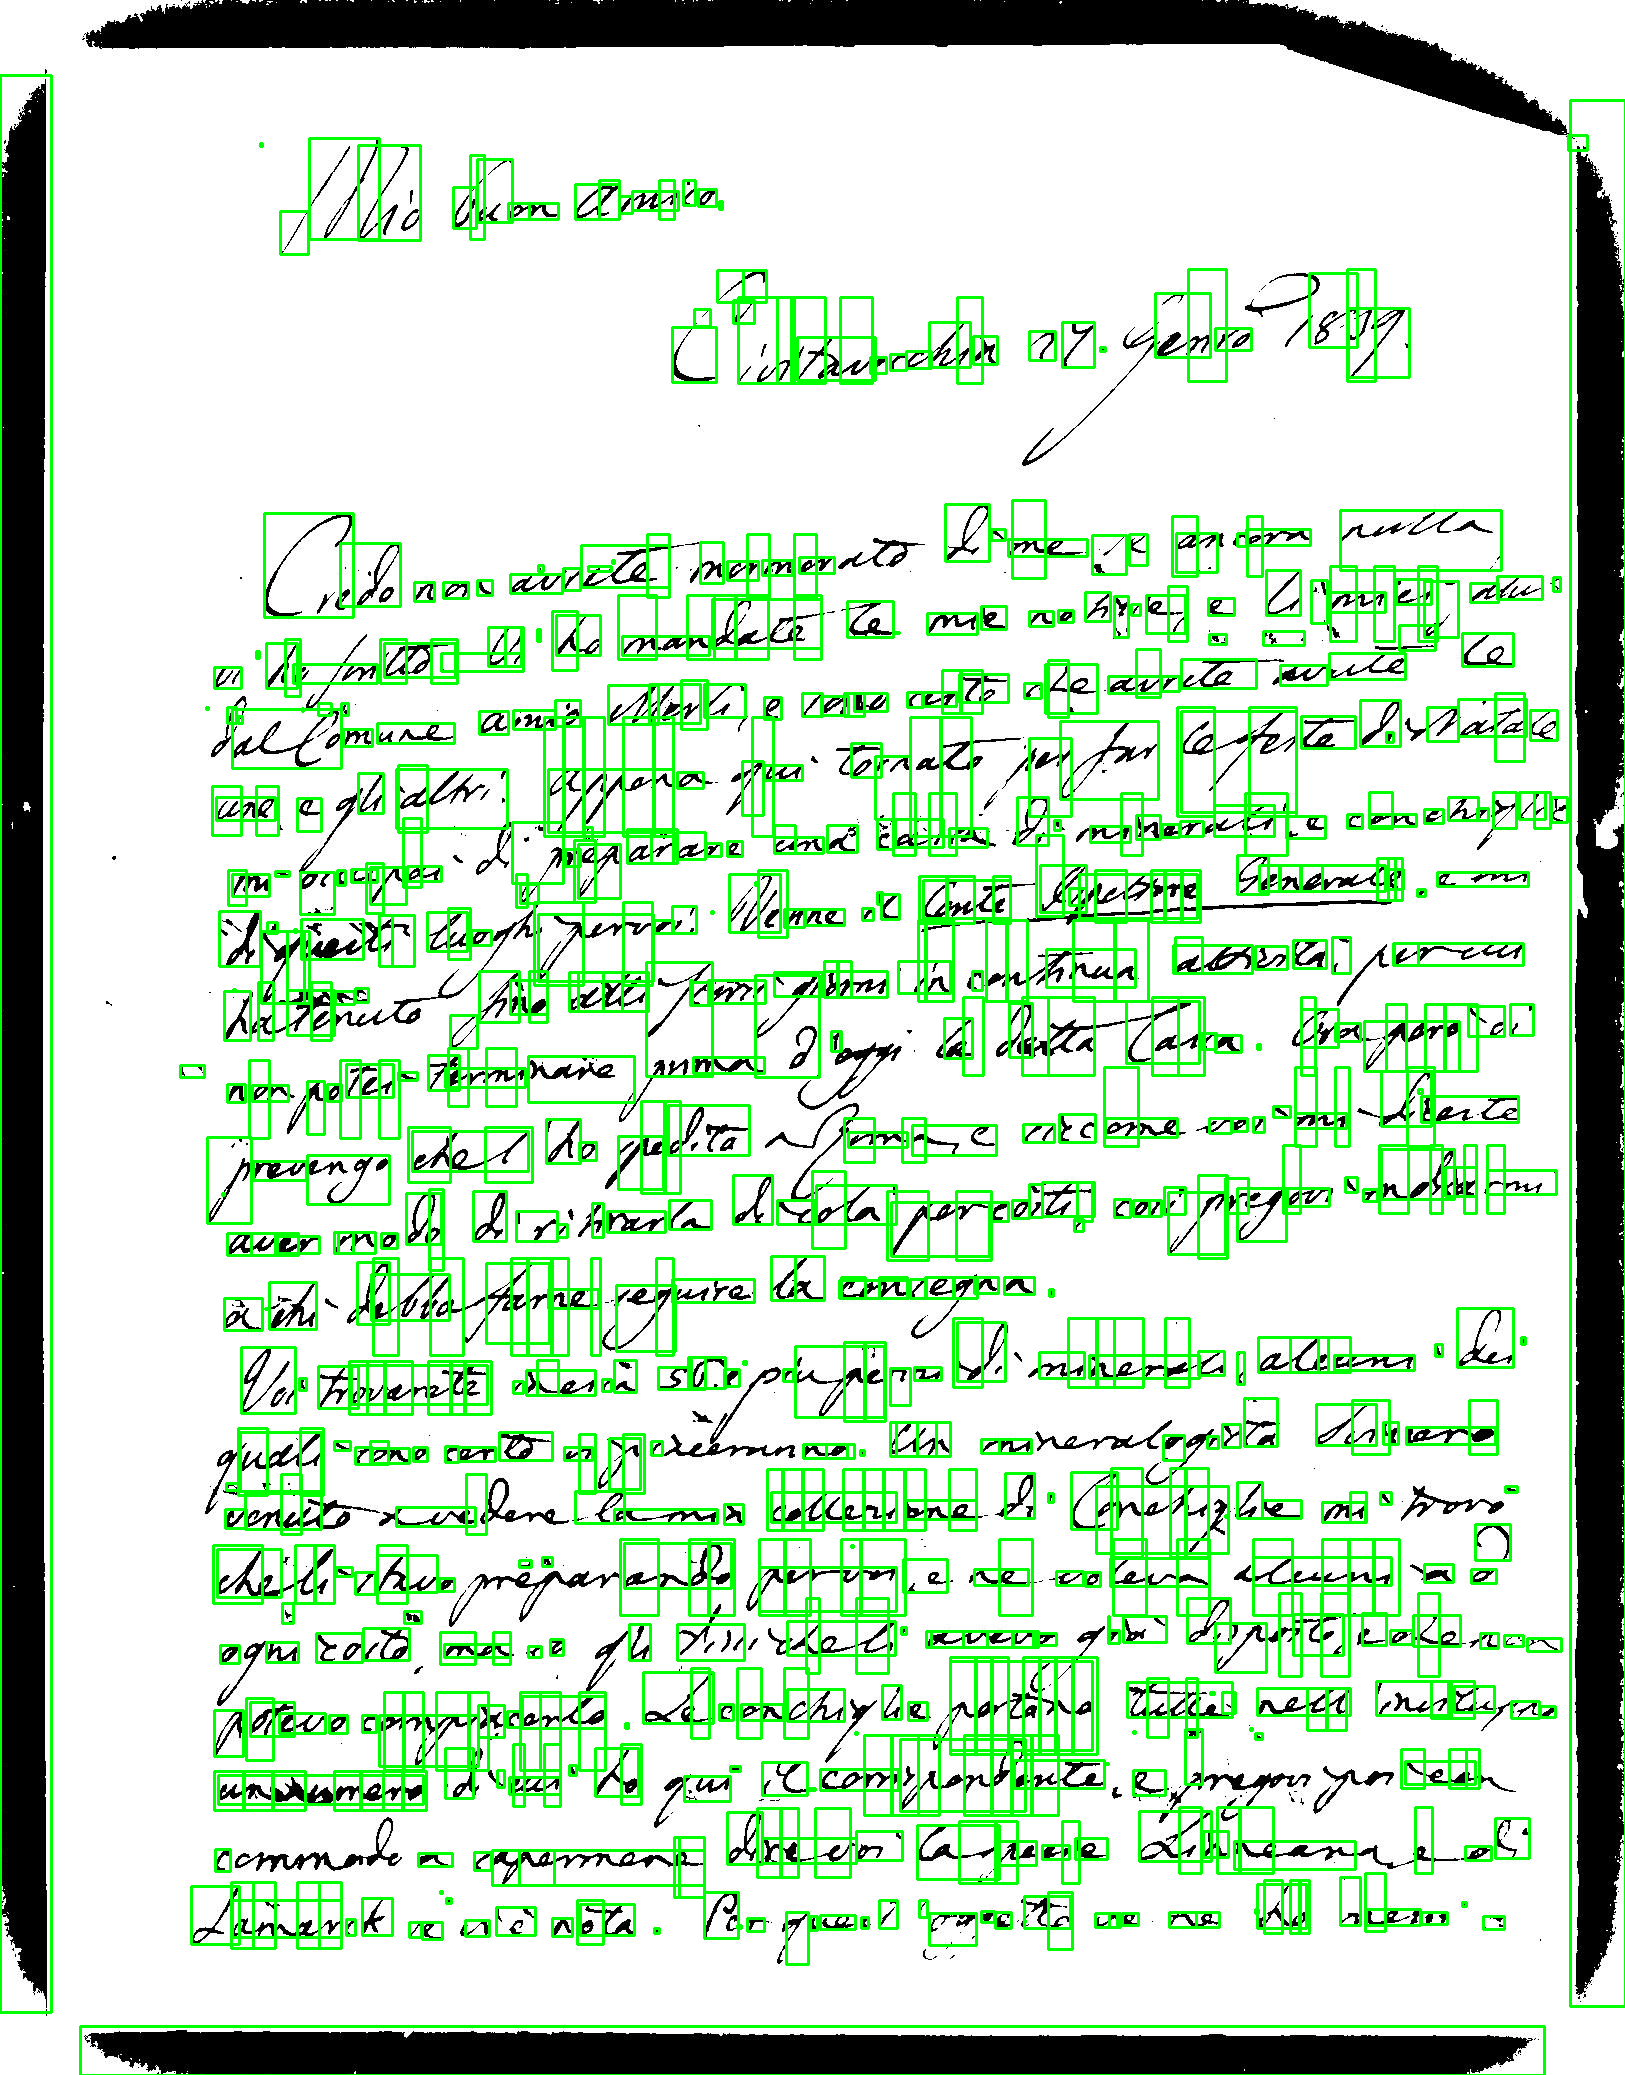 Mio buon Amico.
Civitavecchia 27. Genro 1839.
Credo non avrete mormorato di me, se ancora nulla
vi ho scritto. Vi ho mandate le mie nove, e li miei
dal Comune amico e sono certo che avrete avute le
une e gli altri. appena qui tornato per far le feste di Natale
mi occupai di preparare una cassa di minerali e conchiglie
di questi luoghi per voi. Venne il Conte Generale. e mi
ha tenuto fino alli giorni in continua attività, per cui
non potei terminare prima d'oggi la detta Cassa. Ora però vi
prevengo che l'ho spedita a Roma, e siccome voi mi diceste
aver modo di ritirarla di cola per costi, così pregovi indicarmi
a chi debba farne seguire la consegna.
Voi troverete in essa più pezzi di minerali, alcuni dei
quali sono certo vi piaceranno. Un mineralogista Svizzero
venuto a vedere la mia collezione di Conchiglie mi trovò
che li stavo preparando per voi, e ne voleva alcuni a
ogni costo, ma io gli dissi che li avevo già disposti, e che non
potevo compiacerlo. Le conchiglie portano tutte nell'
un numero di cui ho qui il corrispondente, e pregovi per
commodo a sapermene dire voi la specie Linneana, e di
Lamarck se vi è nota. Per questi oggetti ve ne ho